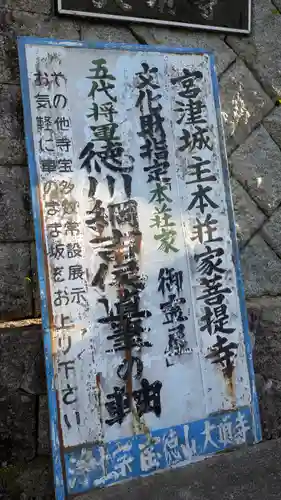 宮津城主本荘家菩提寺
文化財指定本荘家御霊屋
五代将軍徳川綱吉保遺筆の軸
その他寺宝多数常設展示
お気軽にこのまま坂をお上り下さい
浄土宗宝徳山大頂寺